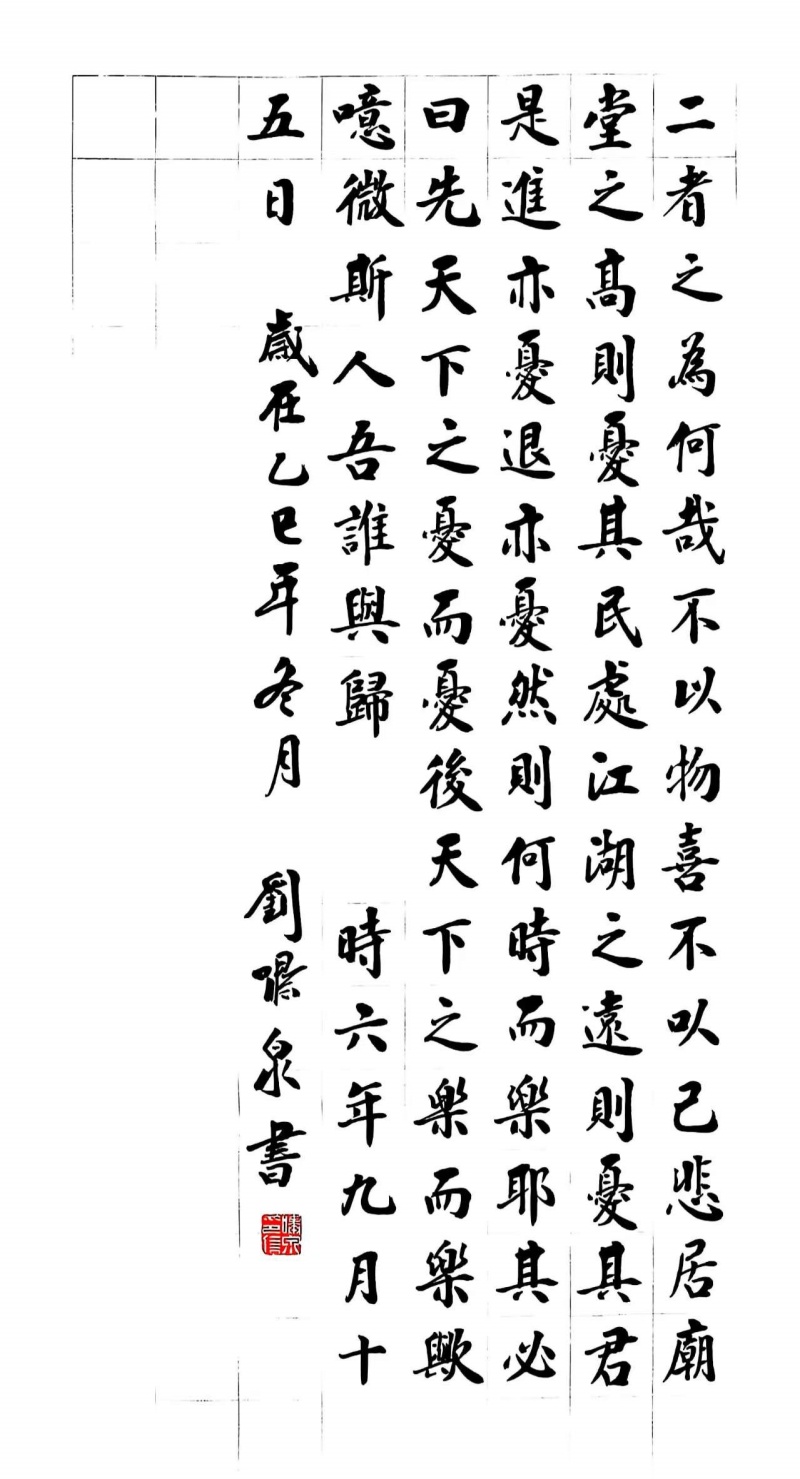 二者之為何哉不以物喜不以己悲居廟
堂之高則憂其民處江湖之遠則憂其君
是進亦憂退亦憂然則何時而樂耶其必
曰先天下之憂而憂後天下之樂而樂歟
噫微斯人吾誰與歸 時六年九月十
五日 歲在乙巳年冬月 劉泉書